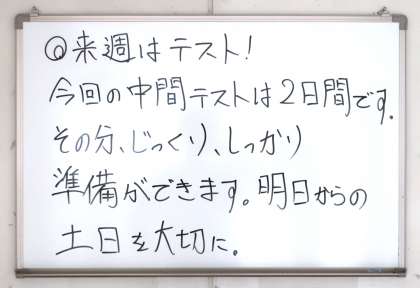 ◎来週はテスト!
今回の中間テストは2日間です.
その分、じっくり、しっかり
準備ができます。明日からの
土日を大切に。